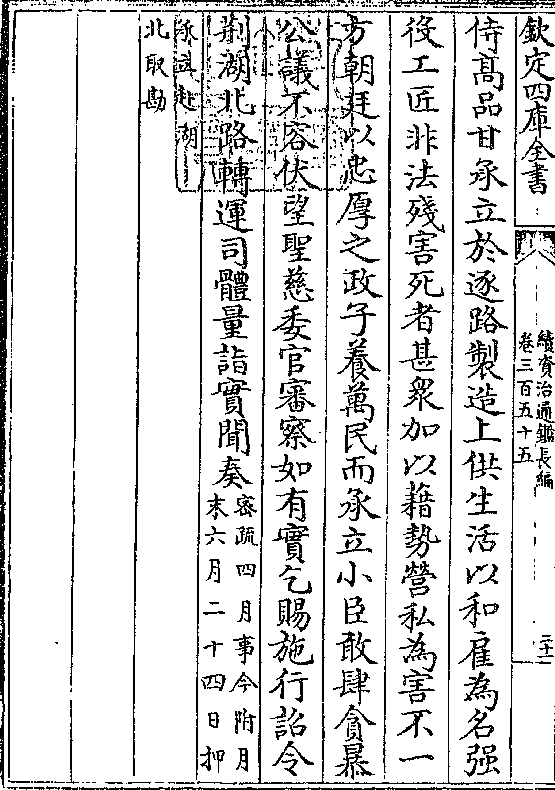 欽定四庫全書
續資治通鑑長編
卷三百五十五
二十二
侍高品甘承立於逐路製造上供生活以和雇為名强
役工匠非法殘害死者甚衆加以藉勢營私為害不一
方朝廷以忠厚之政子養萬民而承立小臣敢肆貪暴
公議不容伏望聖慈委官審察如有實乞賜施行詔令
荆湖北路轉運司體量詣實聞奏
密疏四月事今附月
末六月二十四日押
承立赴湖
北取勘